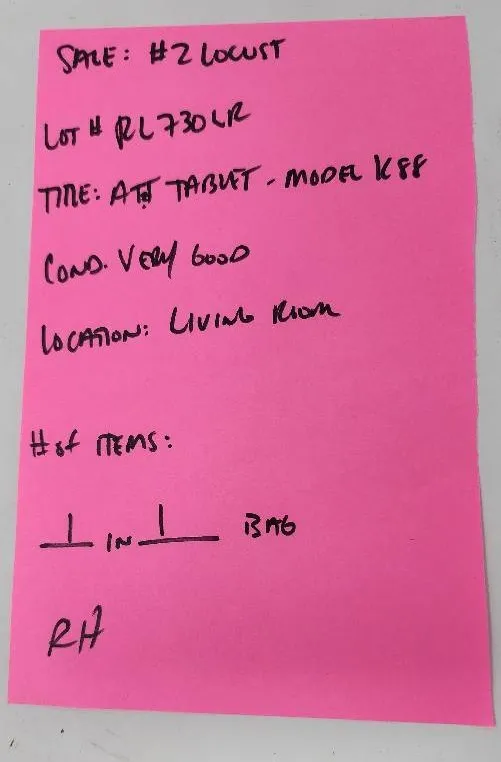 SALE: #2 LOCUST
LOT # RL730LR
TITLE: ATT TABLET - MODEL K88
COND. VERY GOOD
LOCATION: LIVING ROOM
# of ITEMS:
1 IN 1 BAG
RH